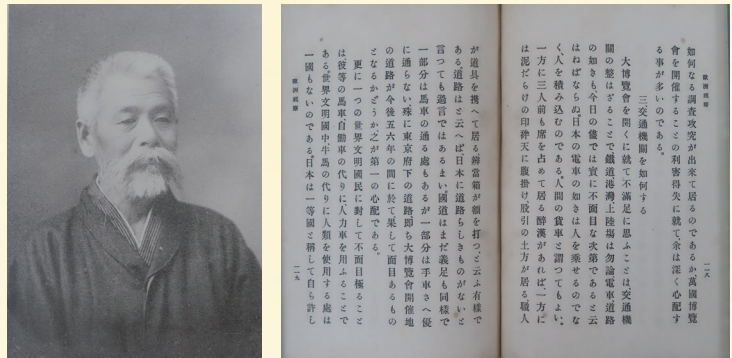 歐洲視察
一一八
如何なる調査攻究が出來て居るのであるか、萬國博覽
會を開催することの利害得失に就て、余は深く心配す
る事が多いのである。
三、交通機關を如何する
大博覽會を開くに就て不滿足に思ふことは、交通機
關の整はざることで鐵道港灣上陸塲は勿論電車道路
の如きも今日の儘では實に不面目な次第であると云
はねばならぬ。日本の電車の如きは人を乘せるのでな
く、人を積み込むのである。人間の貨車と謂つてもよい。
一方に三人前も席を占めて居る醉漢があれば、一方に
は泥だらけの印袢天に腹掛け股引の土方が居る、職人
が道具を携へて居る、辨當箱が額を打つ、と云ふ有樣で
ある。道路はと云へば、日本に道路らしきものがないと
言つても過言ではあるまい。國道はまだ義足も同樣で
一部分は馬車の通る處もあるが、一部分は手車さへ優
に通らない。殊に東京府下の道路、即ち大博覽會開催地
の道路が今後五六年の間に於て果して面目あるもの
となるかどうか、之が第一の心配である。
更に一つの世界文明國民に對して不面目極ること
は彼等の馬車自動車の代りに、人力車を用ふることで
ある。世界文明國中、牛馬の代りに人類を使用する處は
一國もないのである。日本は一等國と稱して自ら許し
一一九